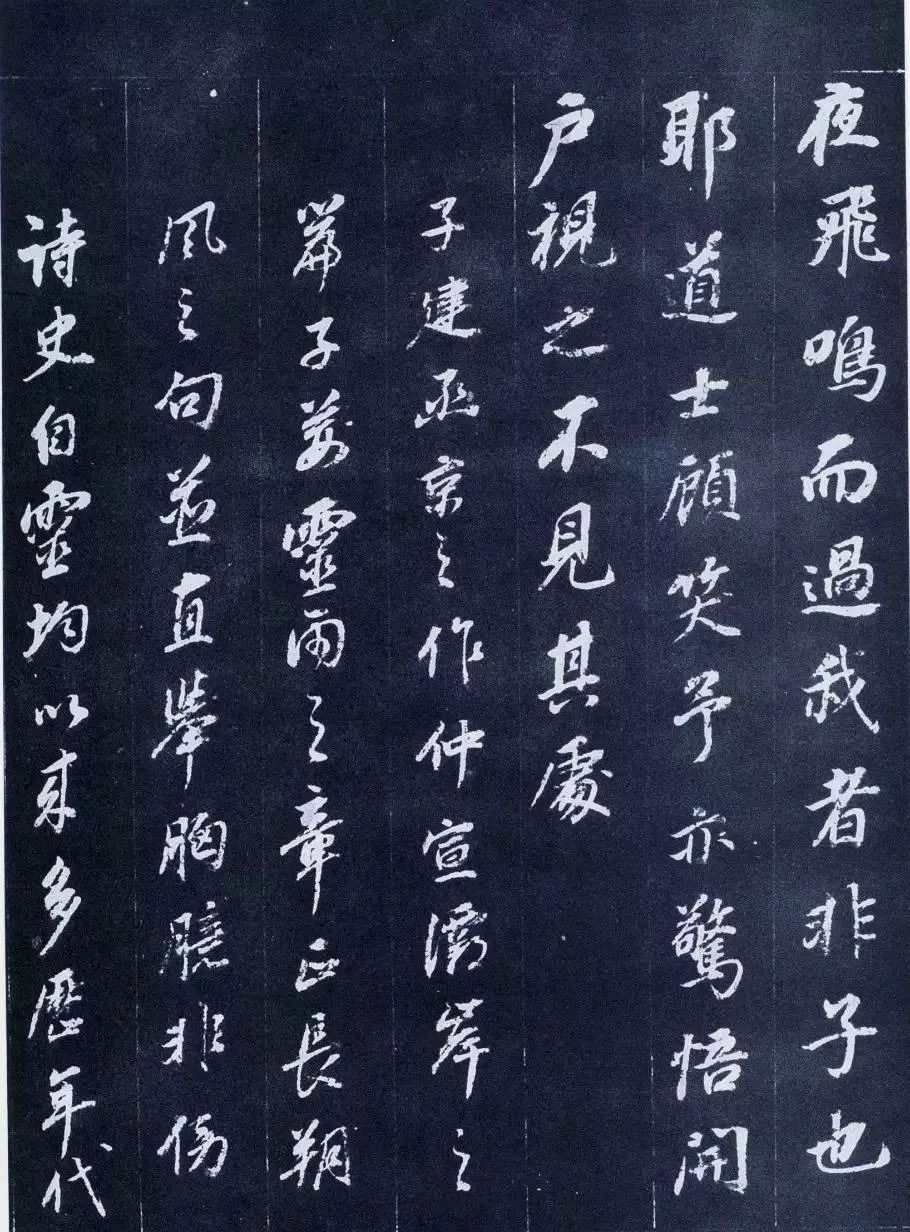 夜飛鳴而過我者非子也
耶道士顧笑予亦驚悟開
戶視之不見其處
子建函京之作仲宣灞岸之
篇子荊靈雨之章正長朔
風之句並直舉胸臆非傍
詩史自靈均以來多歷年代